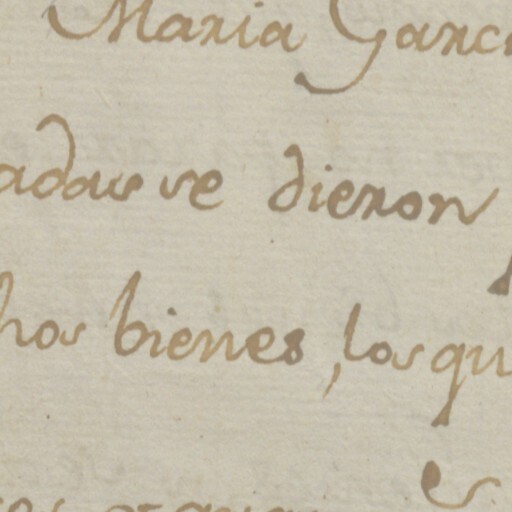 Maria Garc
adas se dieron
hos bienes, los qu